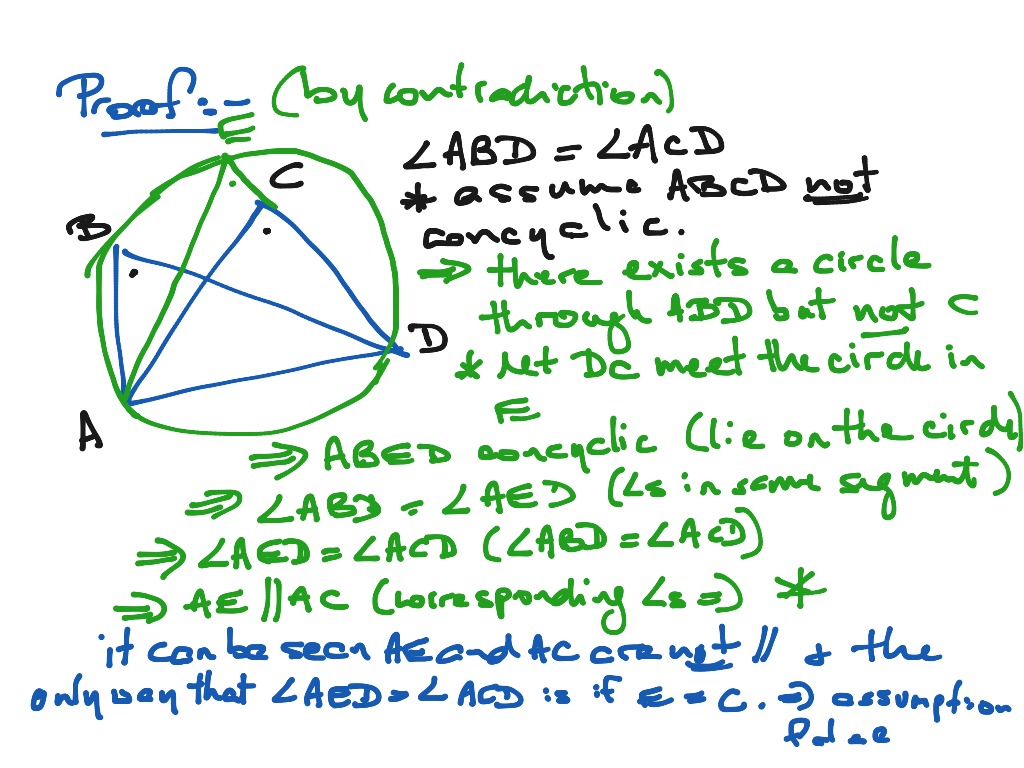 Proof:- (by contradiction)
E
C
B
D
A
∠ABD = ∠ACD
* assume ABCD not
concyclic.
⇒ there exists a circle
through ABD but not C
* Let DC meet the circle in
E
⇒ ABED concyclic (lie on the circle)
⇒ ∠ABD = ∠AED (∠s in same segment)
⇒ ∠AED = ∠ACD (∠ABD = ∠ACD)
⇒ AE || AC (corresponding ∠s =) *
it can be seen AE and AC are not // + the
only way that ∠AED = ∠ACD is if E = C. ⇒ assumption
false